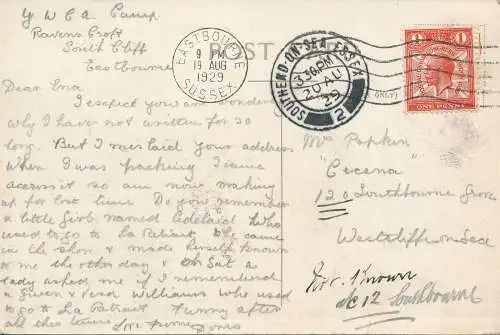 Y W C A Camp
Ravens Croft
South Cliff
Eastbourne
Dear Ena
I expect you are wondering
why I have not written for so
long. But I mislaid your address
when I was packing I came
across it so am now making
up for lost time Do you remember
a little girl named Adelaid who
used to go to La Patiat she came
in the shop & made herself known
to me the other day & on Sat a
lady asked me if I remembered
a Gwen & Williams who used
to go to La Patiat Funny after
all this time
POST CARD
EASTBOURNE
9 PM
19 AUG
1929
SUSSEX
SOUTHEND-ON-SEA ESSEX
3.30 PM
20 AU
29
2
ONLY)
1 1
ONE PENNY
Mrs Popkin
"Cecena"
120 Southbourne Grove
Westcliffe on Sea
Not Known
at 12 Southbourne